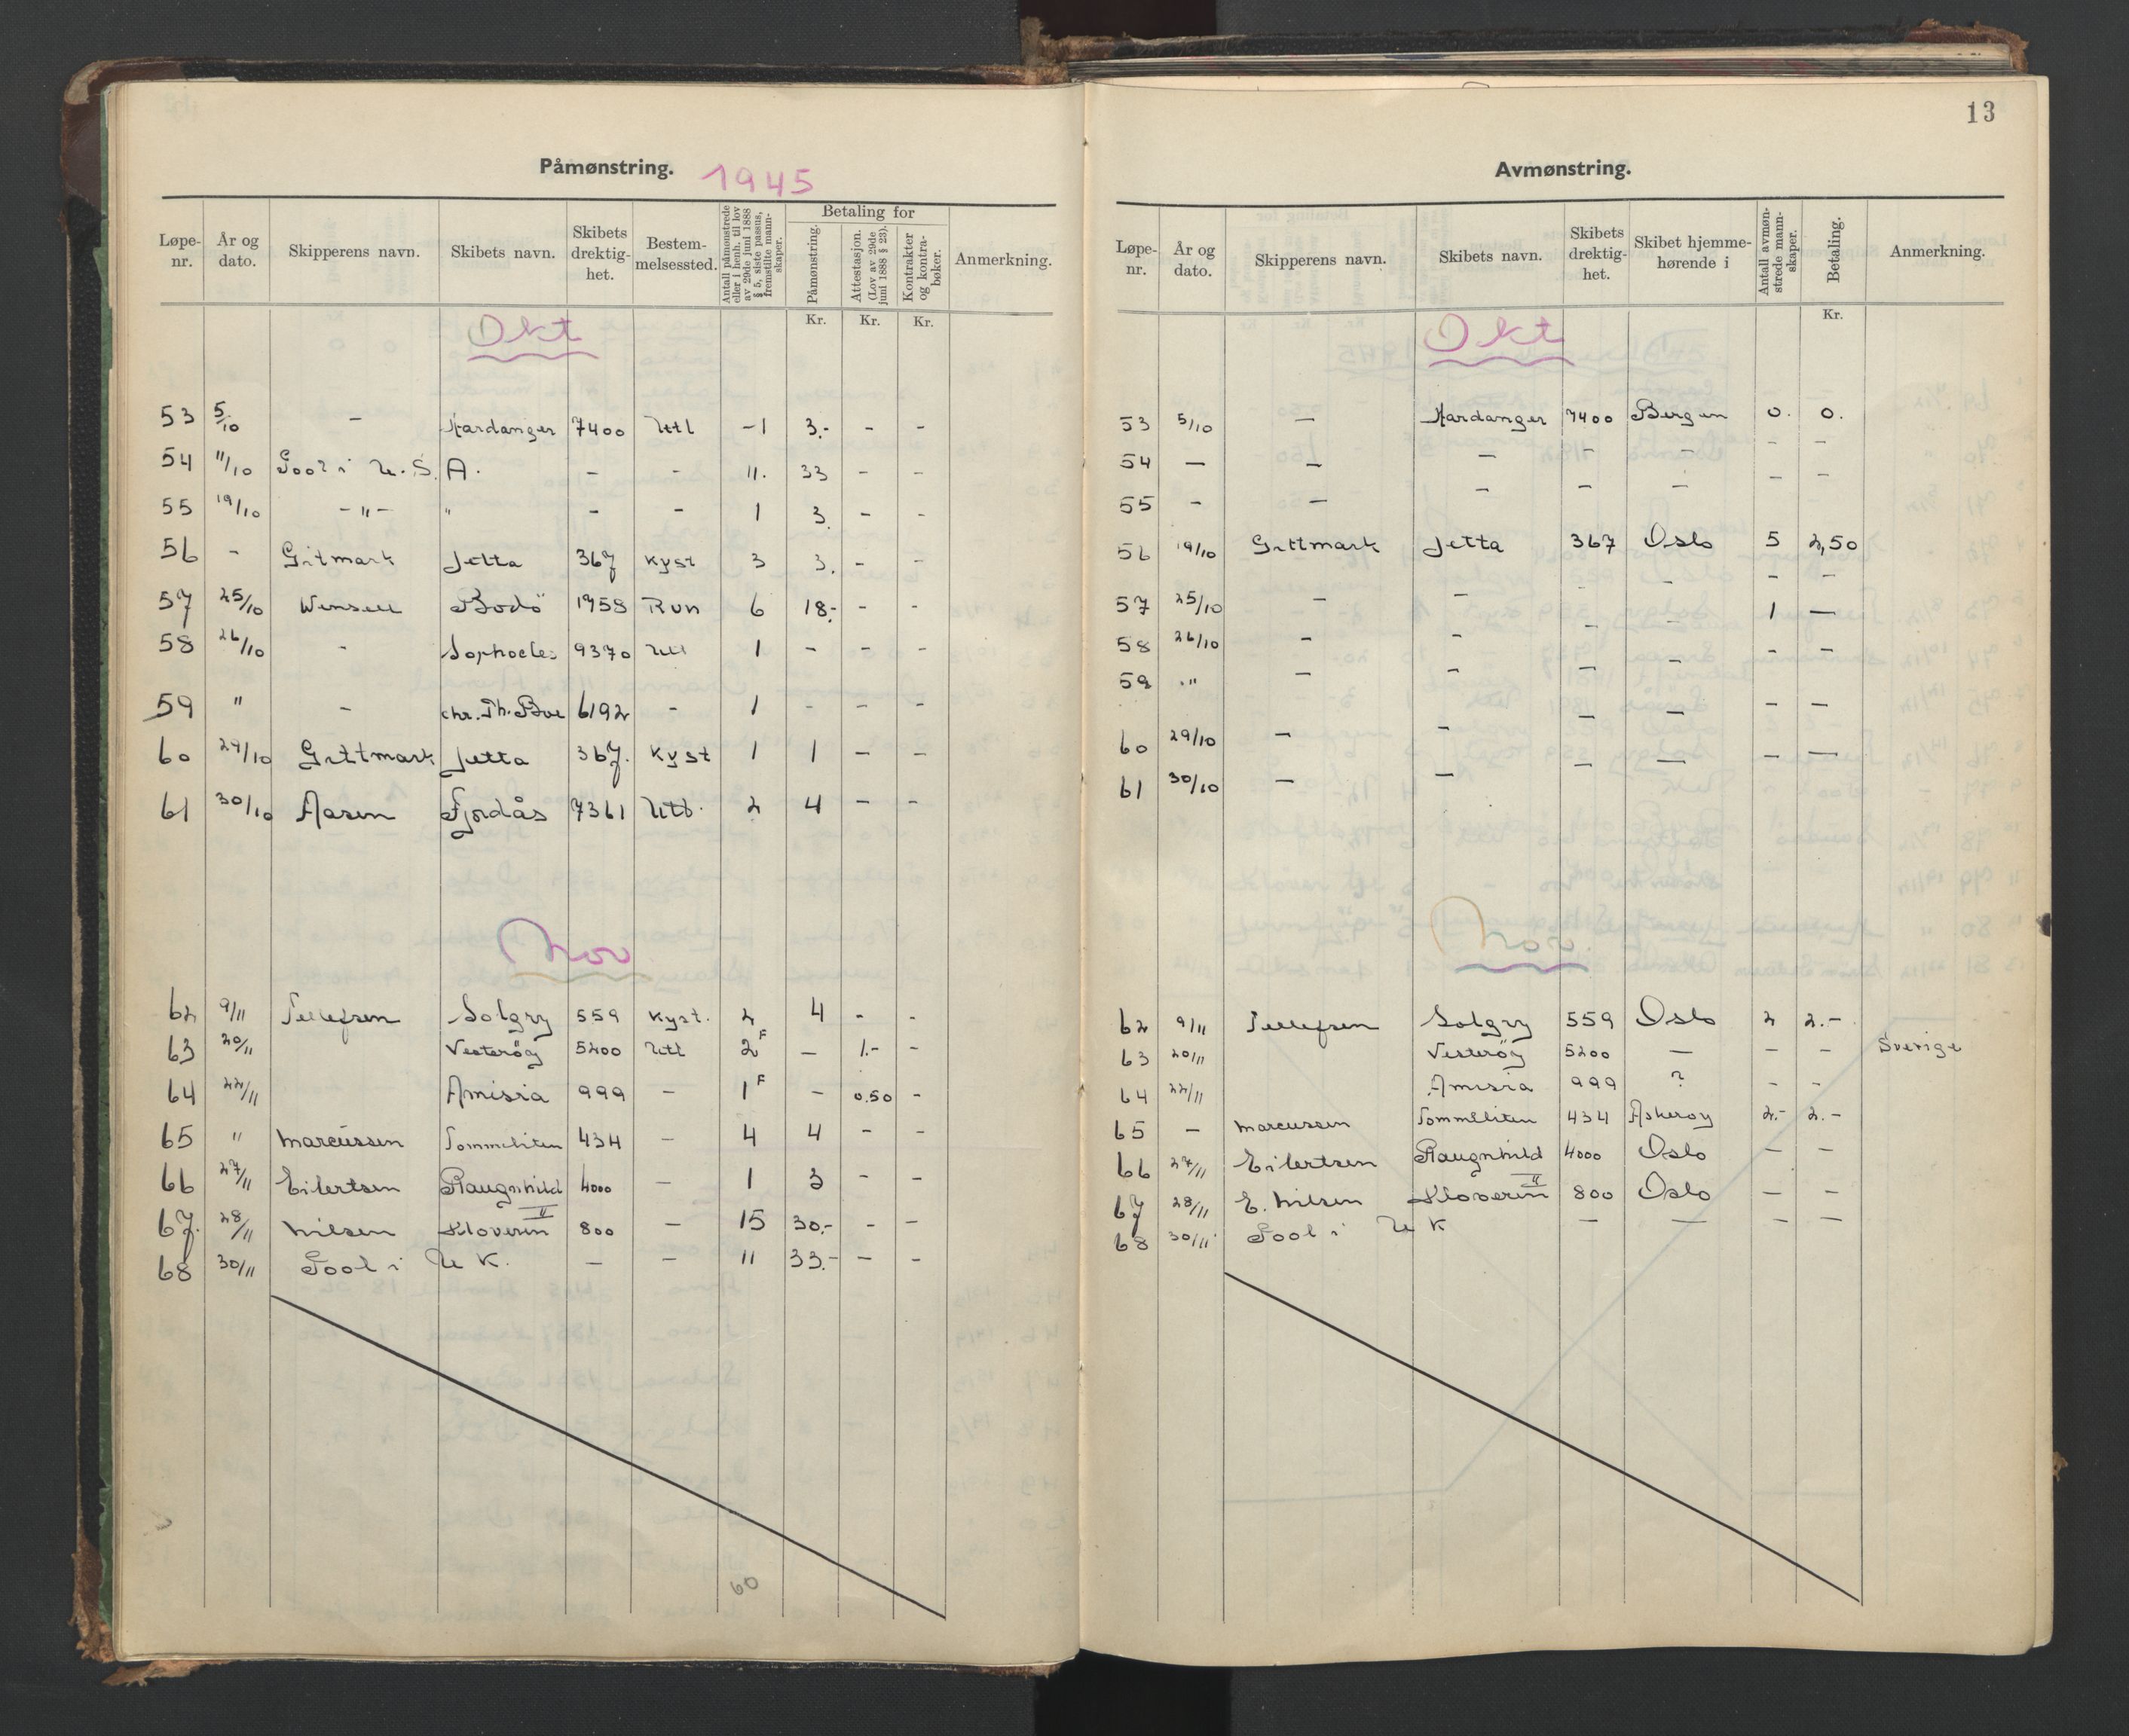 Påmønstring. 1945
Løpe-nr. År og dato. Skipperens navn. Skibets navn. Skibets drektig-het. Bestem-melsessted. Antall påmønstrede eller i henh. til lov av 29de juni 1888 § 5, siste passus, fremstilte mann-skaper. Betaling for Påmønstring. Attestasjon. (Lov av 29de juni 1888 § 23). Kontrakter og kontra-bøker. Anmerkning.
Kr. Kr. Kr.
Okt
53 5/10 - Hardanger 7400 Utl -1 3.- - -
54 11/10 Sool i U.S.A. - - 11. 33 - -
55 19/10 -"- " - - 1 3. - -
56 - Gitmark Jetta 367 Kyst 3 3. - -
57 25/10 Bodö 1958 Run 6 18.- - -
58 26/10 - Sophocles 9370 Utl 1 - - -
59 " - Chr. Th. Boe 6192 - 1 - - -
60 29/10 Gittmark Jetta 367. Kyst 1 1 - -
61 30/10 Aasen Fjordås 7361 Utl. 2 4 - -
Nov
62 9/11 Tellefsen Solgry 559 Kyst. 2 4 - -
63 20/11 Vesteröy 5200 Utl 2F - 1.- -
64 22/11 Amisia 999 - 1F - 0.50 -
65 " Marcussen Tommeliten 434 - 4 4 - -
66 27/11 Eilertsen Raugnhild 4000 - 1 3 - -
67. 28/11 Nilsen Kloverin II 800 - 15 30.- - -
68 30/11 Sool i U K. - - 11 33.- - -
60
13
Avmønstring.
Løpe-nr. År og dato. Skipperens navn. Skibets navn. Skibets drektig-het. Skibet hjemme-hørende i Antall avmøn-strede mann-skaper. Betaling. Anmerkning.
Kr.
Okt
53 5/10 - Hardanger 7400 Bergen 0. 0.
54 - - - - - - -
55 - - - - - - -
56 19/10 Gittmark Jetta 367 Oslo 5 2,50
57 25/10 - - - - - -
58 26/10 - - - - 1 -
59 " - - - - - -
60 29/10 - - - - - -
61 30/10 - - - - - -
Nov.
62 9/11 Tellefsen Solgry 559 Oslo 2 2.-
63 20/11 Vesteröy 5200 - - - Sverige
64 22/11 Amisia 999 ? - -
65 - Marcussen Tommeliten 434 Askeroy 2.- 2.-
66 27/11 Eilertsen Raugnhild 4000 Oslo - -
67 28/11 E. Nilsen Kloverin II 800 Oslo - -
68 30/11 Sool i U K - - - -